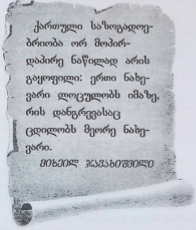 ქართული საზოგადოე-
ბრიობა ორ მოპირ-
დაპირე ნაწილად არის
გაყოფილი: ერთი ნახე-
ვარი ლოცულობს იმაზე,
რის დანგრევასაც
ცდილობს მეორე ნახე-
ვარი.
მიხეილ ჯავახიშვილი